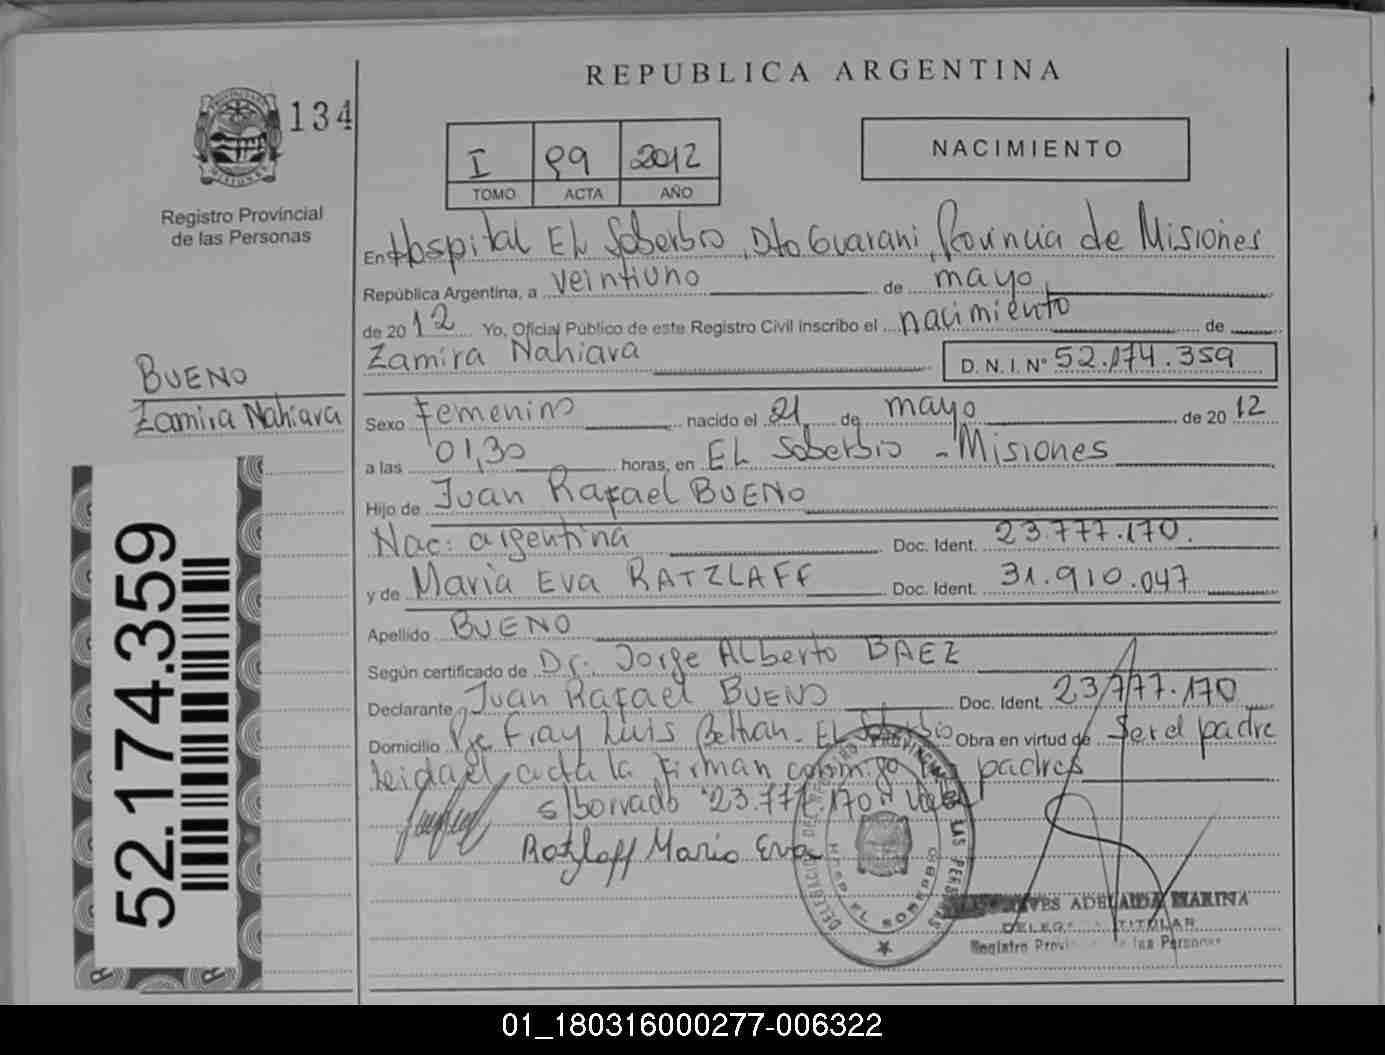 REPUBLICA ARGENTINA
134
I 99 2012
TOMO ACTA AÑO
NACIMIENTO
Registro Provincial
de las Personas
En Hospital EL Soberbio, Dto Guarani, Provincia de Misiones
República Argentina, a veintiuno de mayo
de 2012 Yo, Oficial Público de este Registro Civil inscribo el nacimiento de
Zamira Nahiara D. N. I. Nº 52.174.359
BUENO
Zamira Nahiara
Sexo Femenino nacido el 21 de mayo de 2012
a las 01,30 horas, en EL Soberbio - Misiones
Hijo de Juan Rafael BUENO
Nac: argentina Doc. Ident. 23.777.170.
y de Maria Eva RATZLAFF Doc. Ident. 31.910.047
Apellido BUENO
Según certificado de Dr. Jorge ALberto BAEZ
Declarante Juan Rafael BUENO Doc. Ident. 23.777.170
Domicilio Pje Fray Luis Beltran - EL Soberbio Obra en virtud de Ser el padre
leida el acta la firman conmigo los padres
s/borrado "23.777.170" Vale
Ratzlaff Maria Eva
52.174.359
PROVINCIAL
LAS PERSONAS
EL SOBERBIO
ADELAIDA MARINA
TITULAR
Registro las Personas
01_180316000277-006322